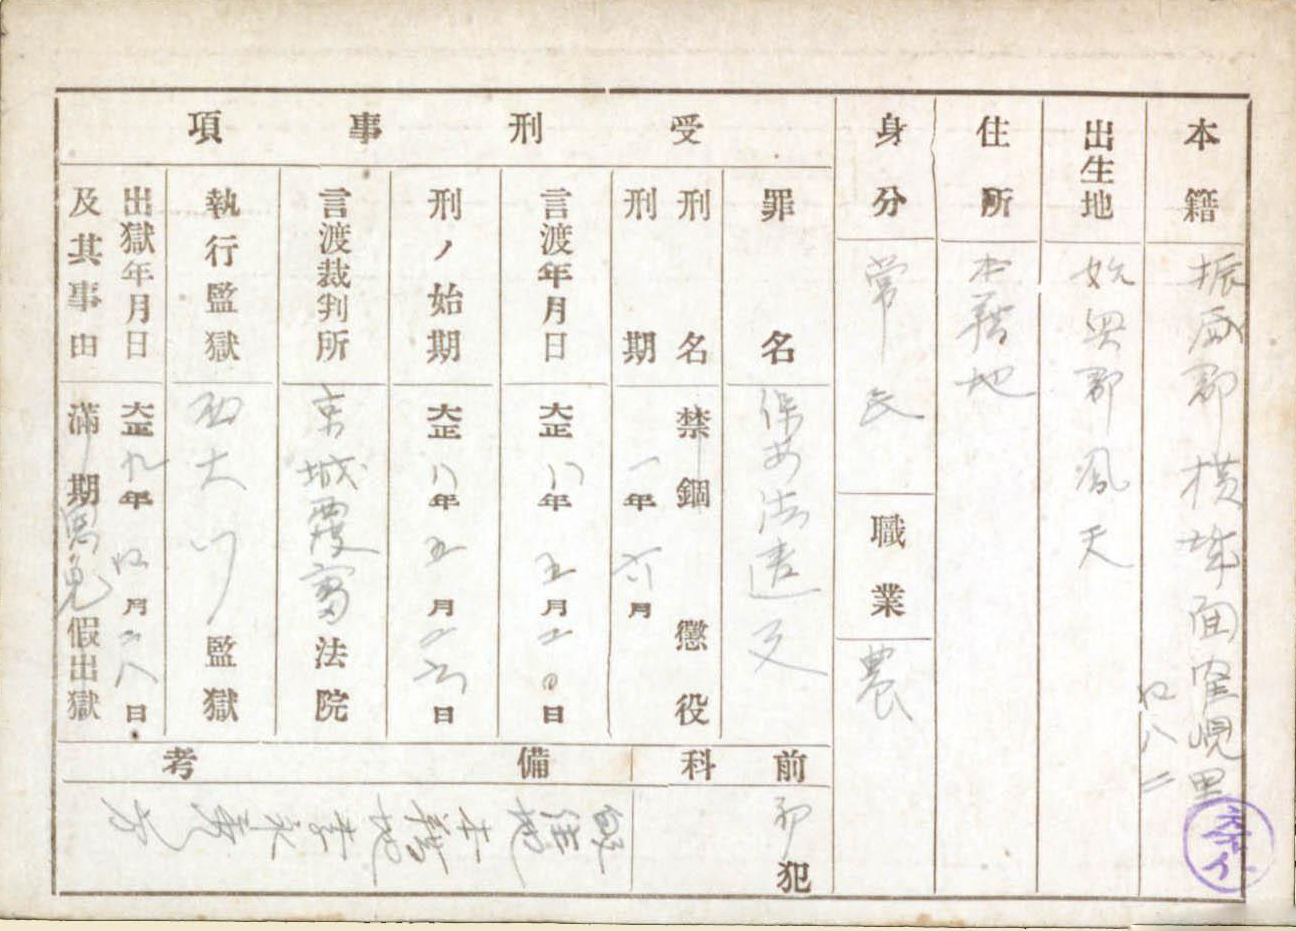 本籍
振威郡横城面
四八二
出生地
始興郡風天
住所
本籍地
身分
常民
職業
農
受刑事項
罪名
保安法違反
刑名
禁錮 懲役
刑期
一年六月
言渡年月日
大正八年五月二〇日
刑ノ始期
大正八年五月二六日
言渡裁判所
京城覆審法院
執行監獄
西大门監獄
出獄年月日
及其事由
大正九年四月二八日
滿期 恩免 假出獄
前科
初犯
備考
住地
本籍地李
方